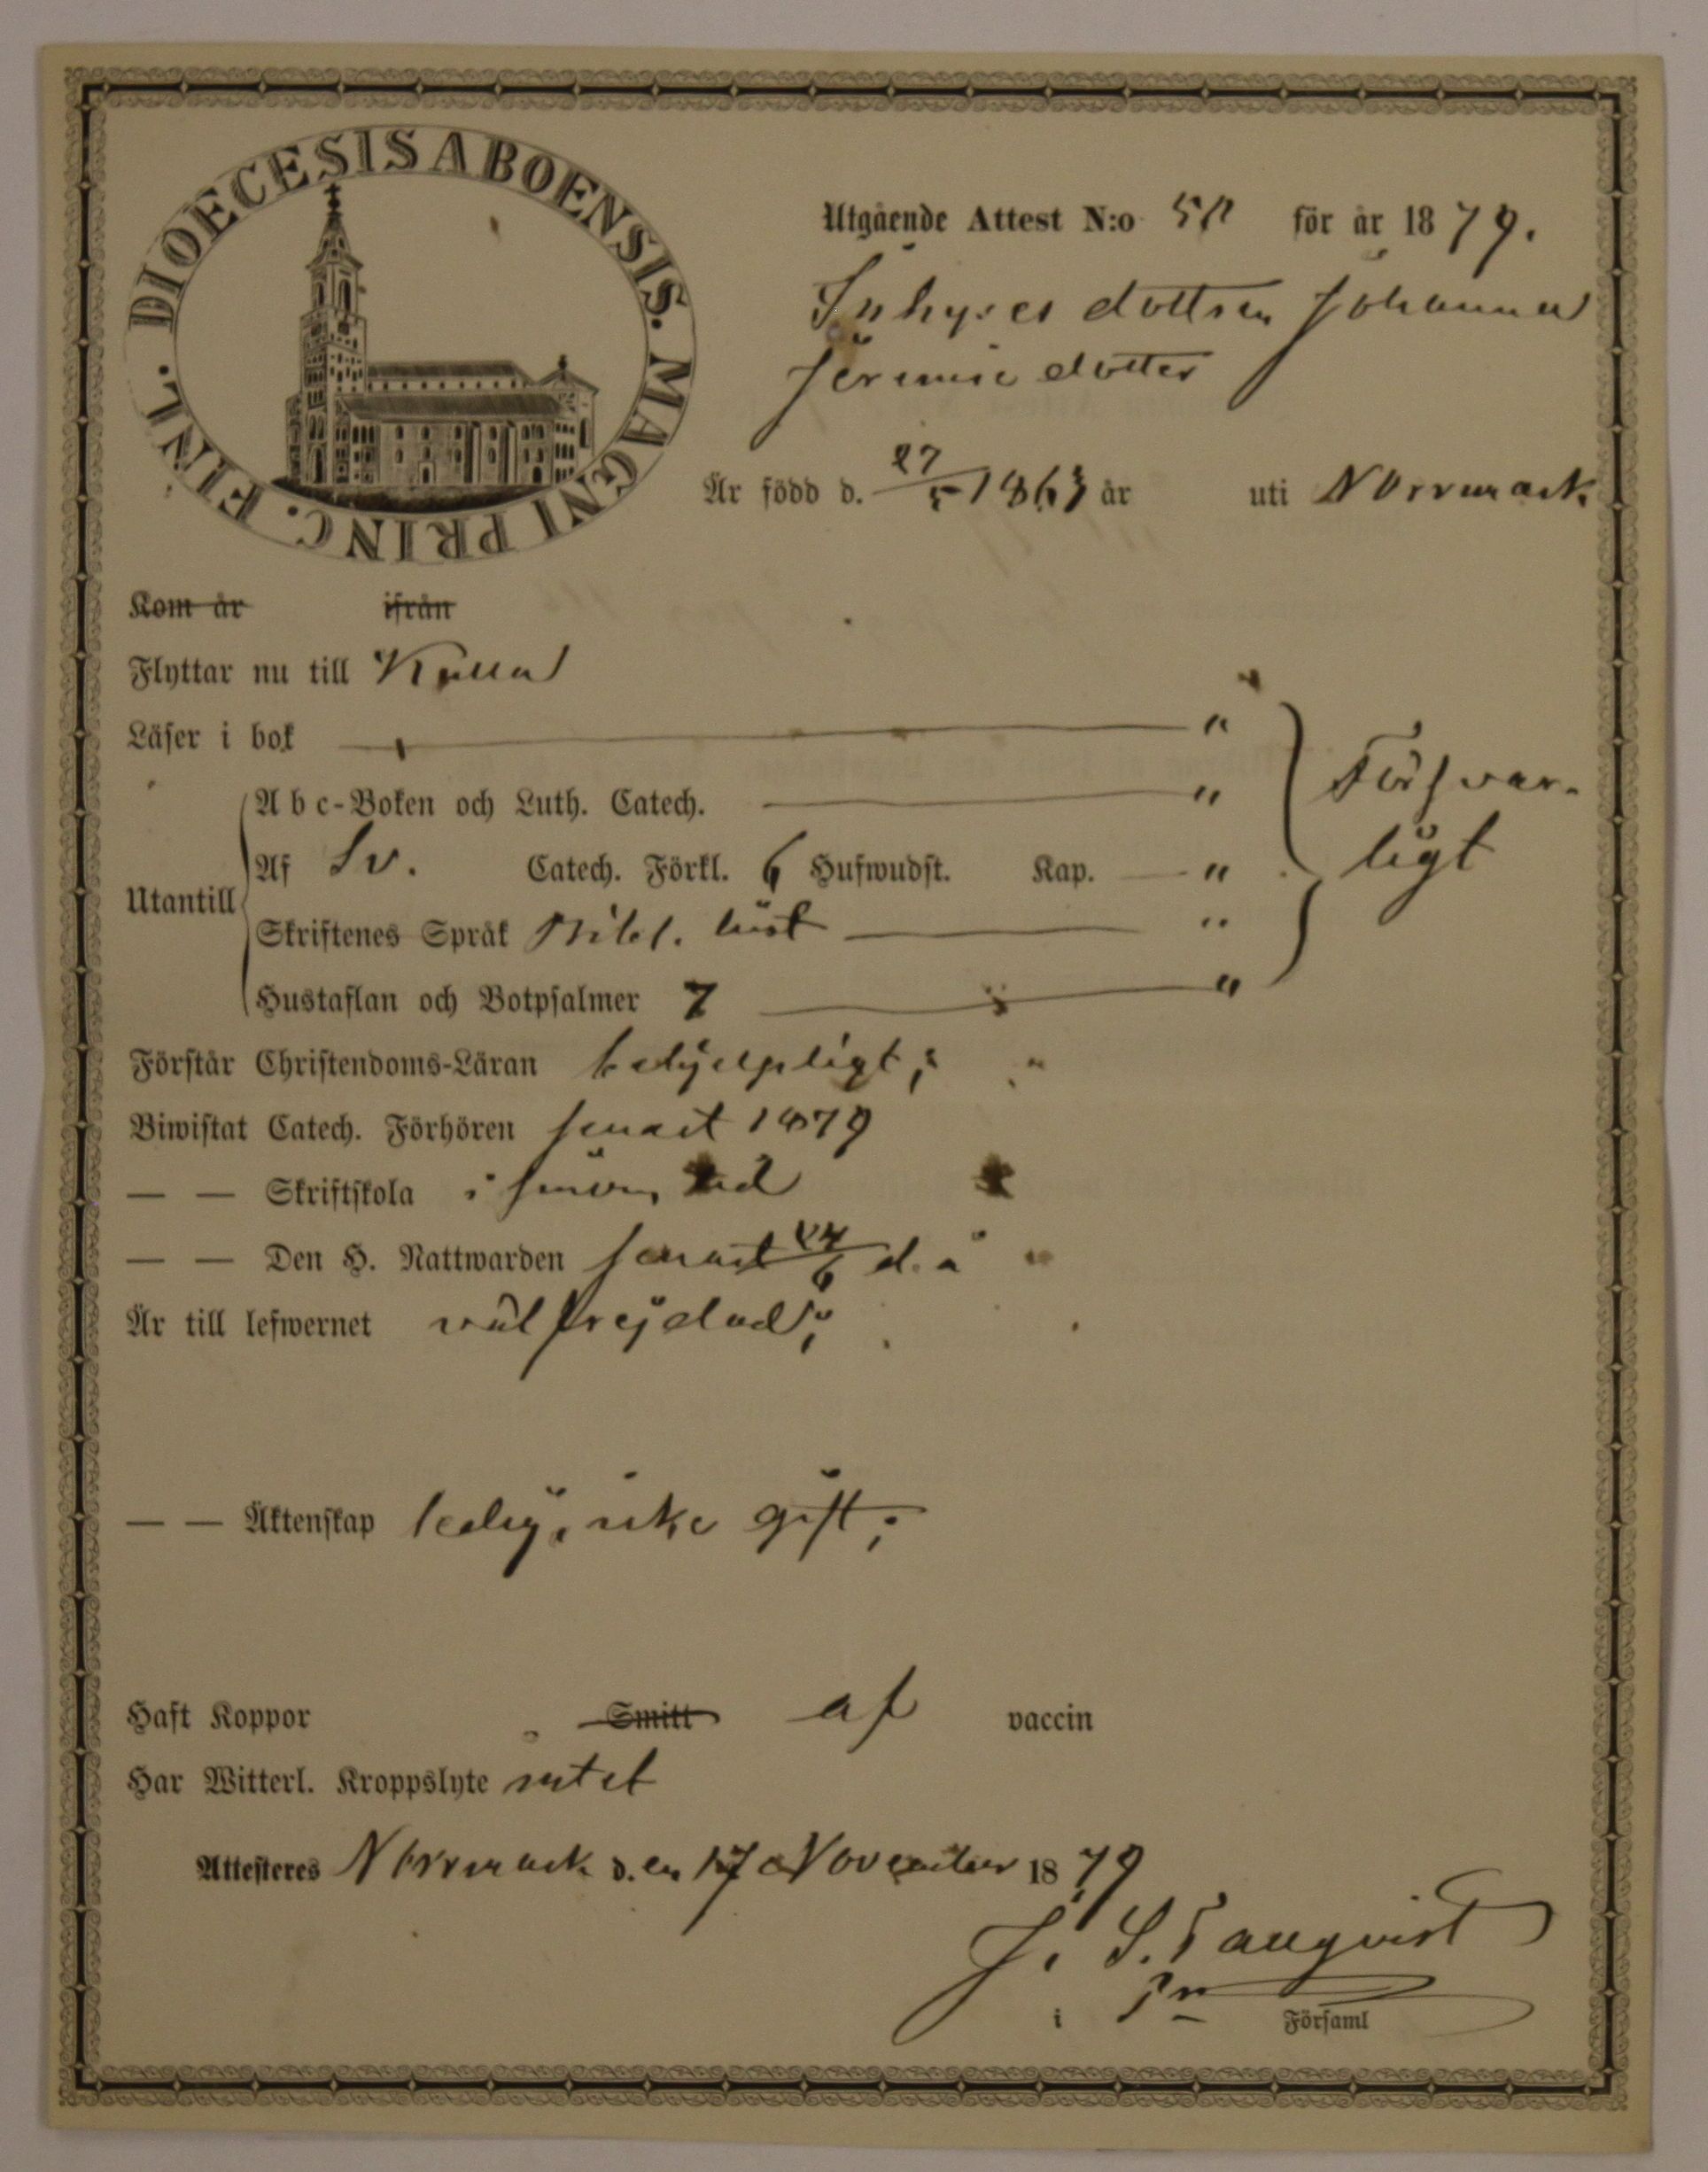 DIOECESIS ABOENSIS. MAGNI PRINC. FINL.
Utgående Attest N:o 50 för år 1879.
Inhyses dottren Johanna
Jeremie dotter
Är född d. 27/5 1863 år uti Norrmark
Kom år ifrån
Flyttar nu till Kulla
Läser i bok — "
Abc-Boken och Luth. Catech. — "
Försvar-
ligt
Utantill
Af Sv. Catech. Förkl. 6 Hufwudst. Kap. — "
Skriftenes Språk Bibl. hist — "
Hustaflan och Botpsalmer 7 — "
Förstår Christendoms-Läran behjelpligt;
Biwistat Catech. Förhören senast 1879
— — Skriftskola i sinom tid
— — Den H. Nattwarden senast 24/6 d. å
Är till lefwernet välfrejdad;
— — Äktenskap ledig, icke gift;
Haft Koppor Smitt af vaccin
Har Witterl. Kroppslyte intet
Attesteres Norrmark d. en 17 November 1879
J. S. Tallqvist
i Församl